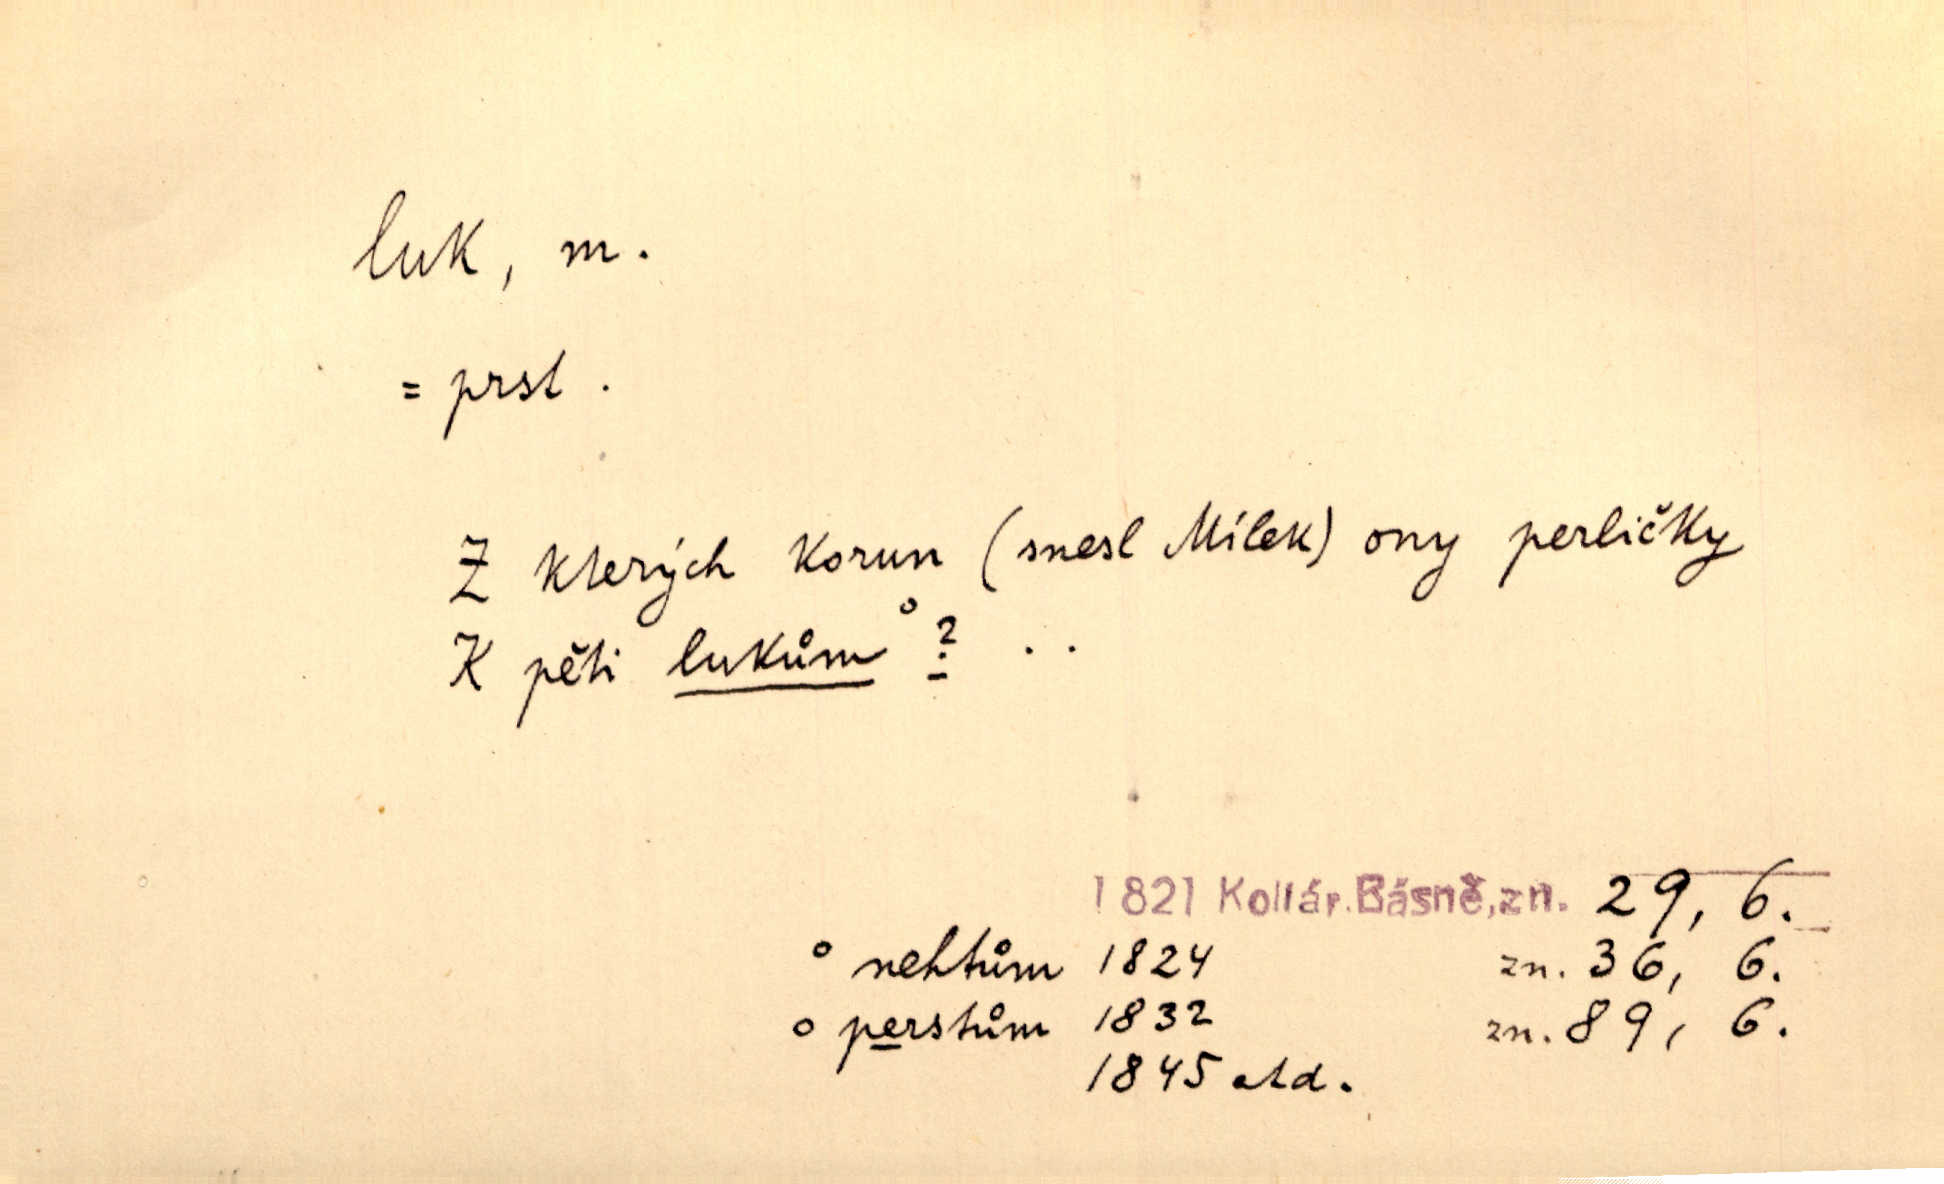 luk, m.
= prst.
Z kterých korun (snesl Mílek) ony perličky
K pěti lukům ° ? . .
1821 Kollár. Básně, zn. 29, 6.
° nehtům 1824 zn. 36, 6.
° perstům 1832 zn. 89, 6.
1845 atd.